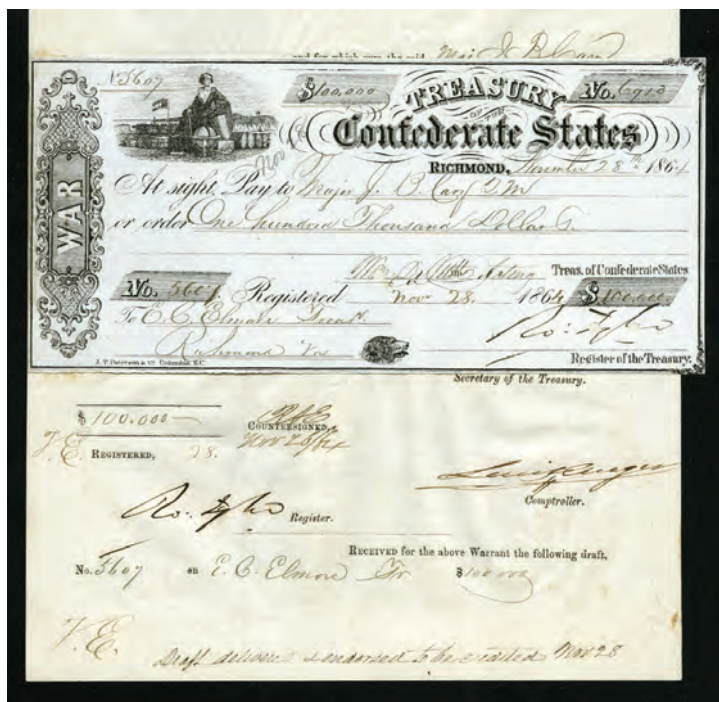 and for which sum the said Maj J B Cary
No 5607 $100,000 TREASURY No. 6913
OF THE
Confederate States
WAR
Nov
RICHMOND, November 28th 1864
At sight, Pay to Major J. B. Cary QM
or order One hundred Thousand Dollars
Acting Treas. of Confederate States
No. 5607 Registered Nov 28. 1864 $100,000
To E. C. Elmore Treasr.
Richmond Va Ro: Tyler
Register of the Treasury.
J. T. Paterson & Co. Columbia, S.C.
Secretary of the Treasury.
$ 100.000—
COUNTERSIGNED,
Nov 28/64
T. E. REGISTERED, 28.
Lewis Cruger
Comptroller.
Ro: Tyler Register.
RECEIVED for the above Warrant the following draft,
No. 5607 on E. C. Elmore Tr $100 000
T. E.
Draft delivered endorsed to be credited Nov 28